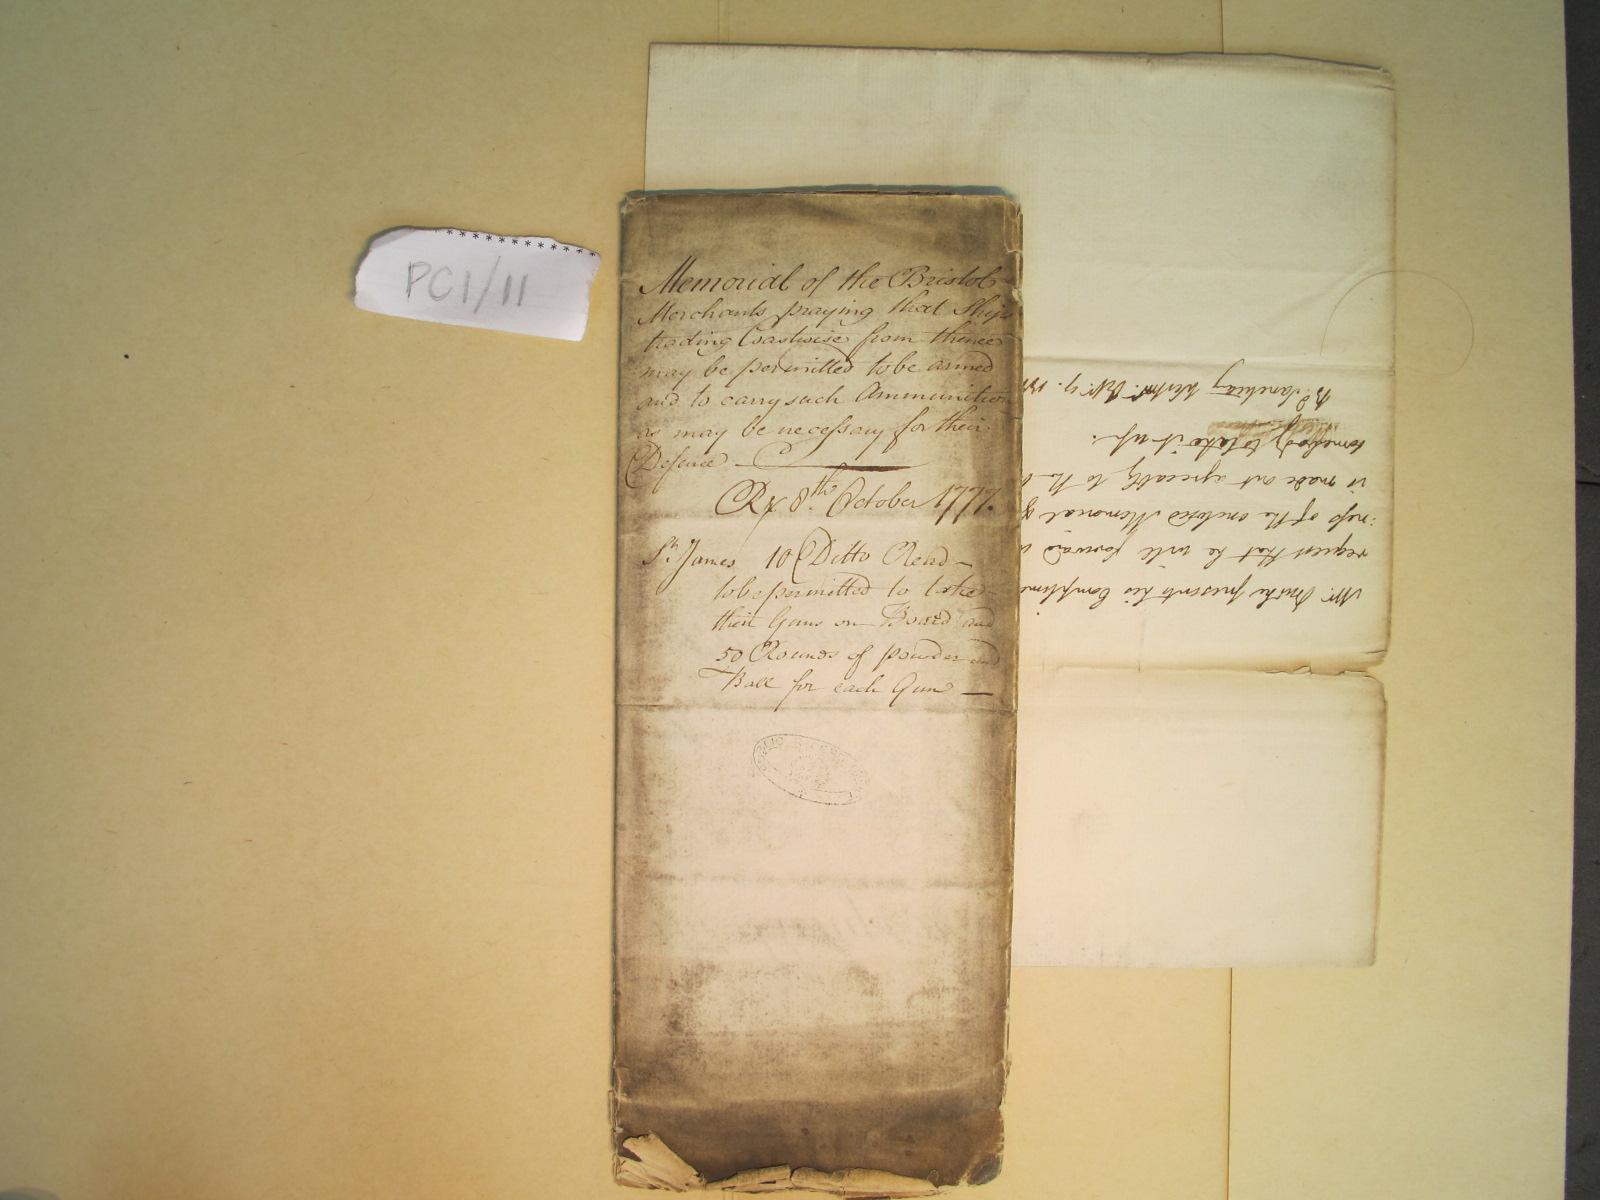 PC1/11
Memorial of the Bristol
Merchants praying that Ships
trading Coastwise from thence
may be permitted to be armed
and to carry such Ammunition
as may be necessary for their
Defence
Rx 8th October 1777.
St. James 10 Ditto Read
to be permitted to take
their Guns on Board and
50 Rounds of powder and
Ball for each Gun
Mr. presents his
request that he will forward
of the enclosed Memorial
made out agreeably to the
somebody to take it up.